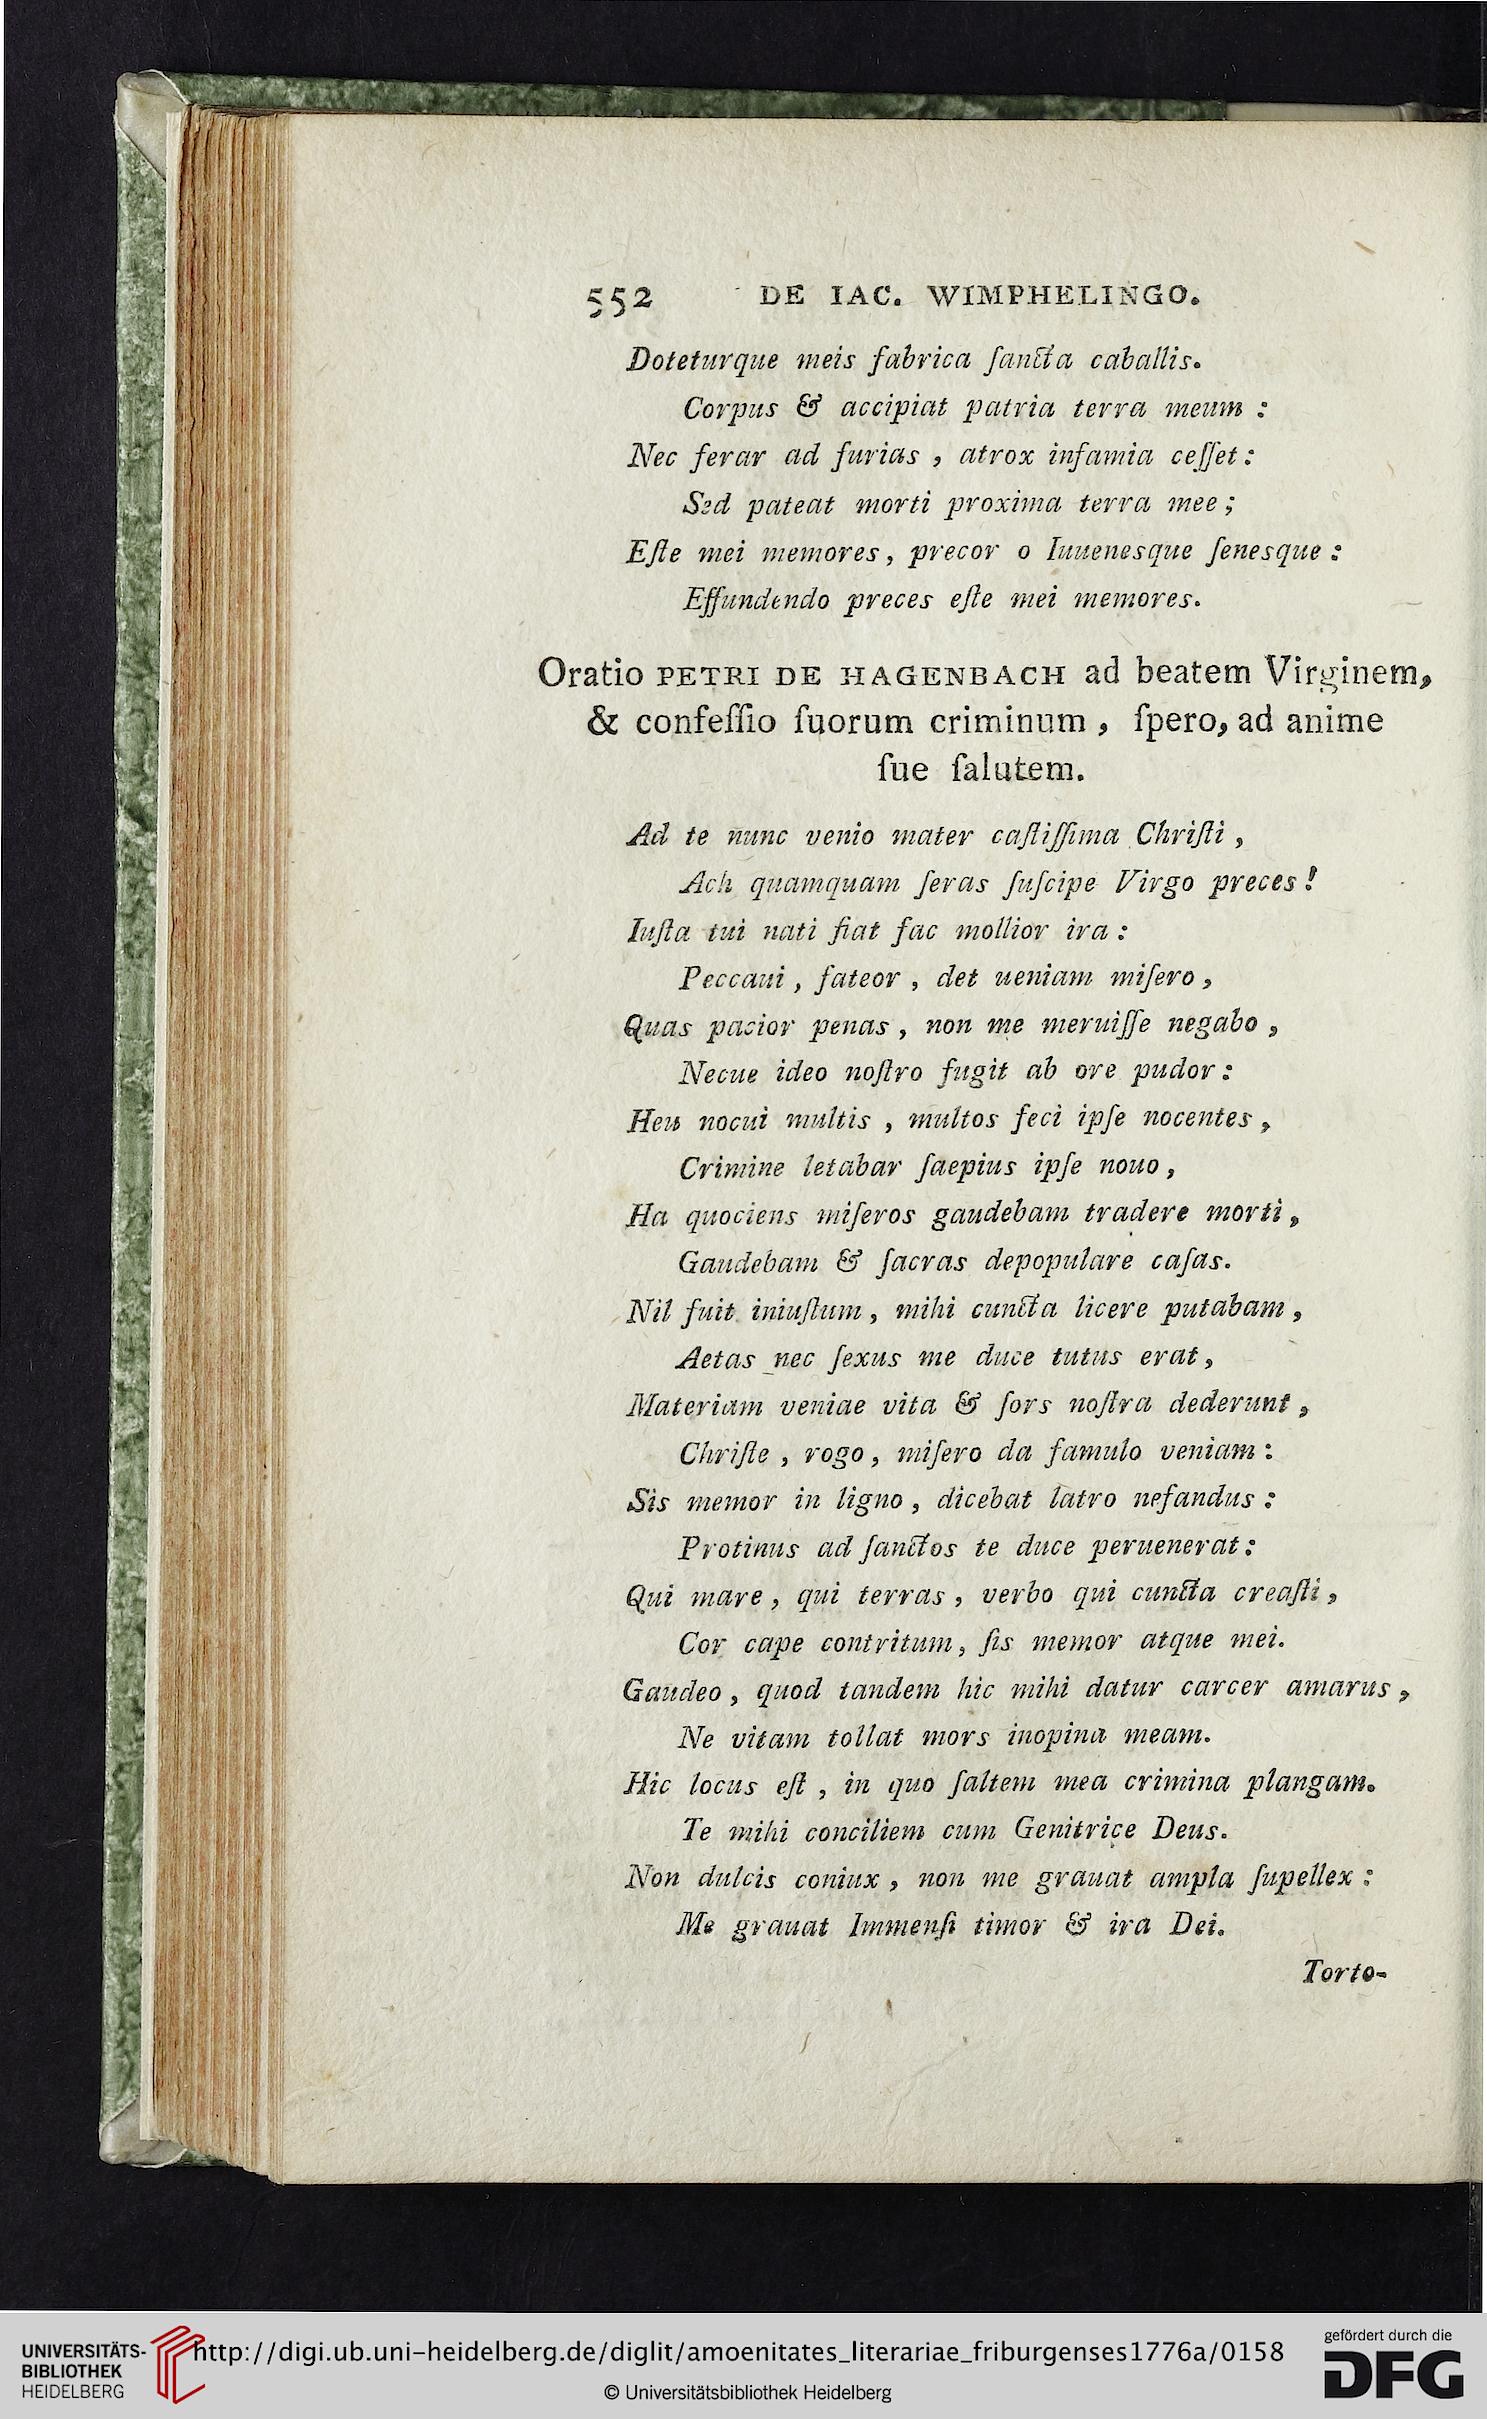 552 DE IAC. WIMPHELINGO.
Doteturque meis fabrica ſancta caballis.
Corpus & accipiat patria terra meum :
Nec ferar ad furias , atrox infamia ceſſet :
Sed pateat morti proxima terra mee ;
Eſte mei memores , precor o Iuuenesque ſenesque :
Effundendo preces eſte mei memores.
Oratio PETRI DE HAGENBACH ad beatem Virginem,
& confeſſio ſuorum criminum , ſpero, ad anime
ſue ſalutem.
Ad te nunc venio mater caſtiſſima Chriſti ,
Ach quamquam ſeras ſuſcipe Virgo preces !
Iuſta tui nati fiat fac mollior ira :
Peccaui , fateor , det ueniam miſero ,
Quas pacior penas , non me meruiſſe negabo ,
Necue ideo noſtro fugit ab ore pudor :
Heu nocui multis , multos feci ipſe nocentes ,
Crimine letabar ſaepius ipſe nouo ,
Ha quociens miſeros gaudebam tradere morti ,
Gaudebam & ſacras depopulare caſas.
Nil fuit iniuſtum , mihi cuncta licere putabam ,
Aetas nec ſexus me duce tutus erat ,
Materiam veniae vita & ſors noſtra dederunt ,
Chriſte , rogo , miſero da famulo veniam :
Sis memor in ligno , dicebat latro nefandus :
Protinus ad ſanctos te duce peruenerat :
Qui mare , qui terras , verbo qui cuncta creaſti ,
Cor cape contritum , ſis memor atque mei.
Gaudeo , quod tandem hic mihi datur carcer amarus ,
Ne vitam tollat mors inopina meam.
Hic locus eſt , in quo ſaltem mea crimina plangam.
Te mihi conciliem cum Genitrice Deus.
Non dulcis coniux , non me grauat ampla ſupellex :
Me grauat Immenſi timor & ira Dei.
Torto-
UNIVERSITÄTS-
BIBLIOTHEK
HEIDELBERG
http://digi.ub.uni-heidelberg.de/diglit/amoenitates_literariae_friburgenses1776a/0158
© Universitätsbibliothek Heidelberg
gefördert durch die
DFG